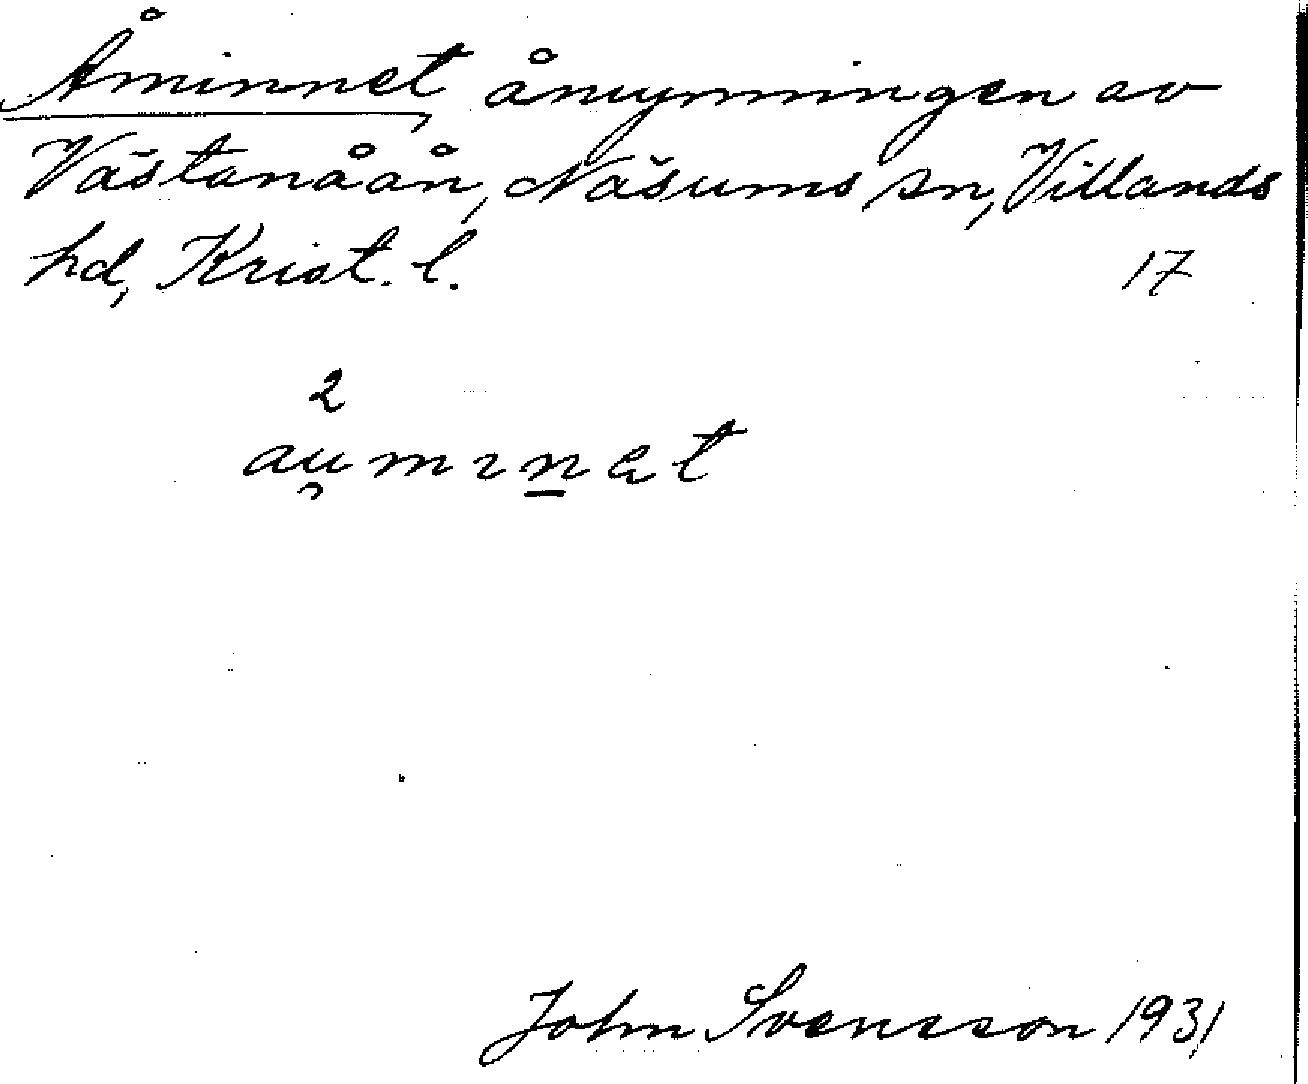 Åminnet, åmynningen av
Västanåån, Näsums sn, Villands
hd, Krist. l.
17
2
au̯min̲et
John Svensson 1931